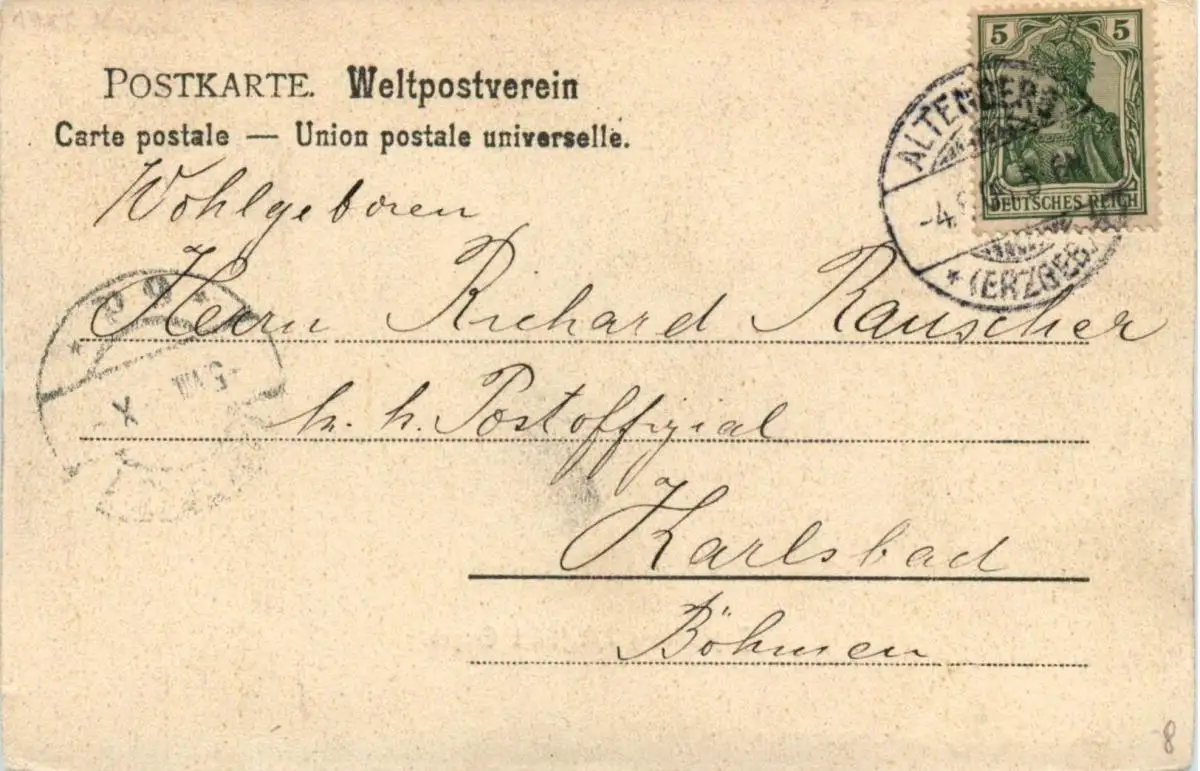 5 5
POSTKARTE. Weltpostverein
ALTENBERG
Carte postale — Union postale universelle.
DEUTSCHES REICH
Wohlgeboren
-4.
* (ERZGEB.)
Herrn Richard Rauscher
k. k. Postoffizial
Karlsbad
Böhmen
8